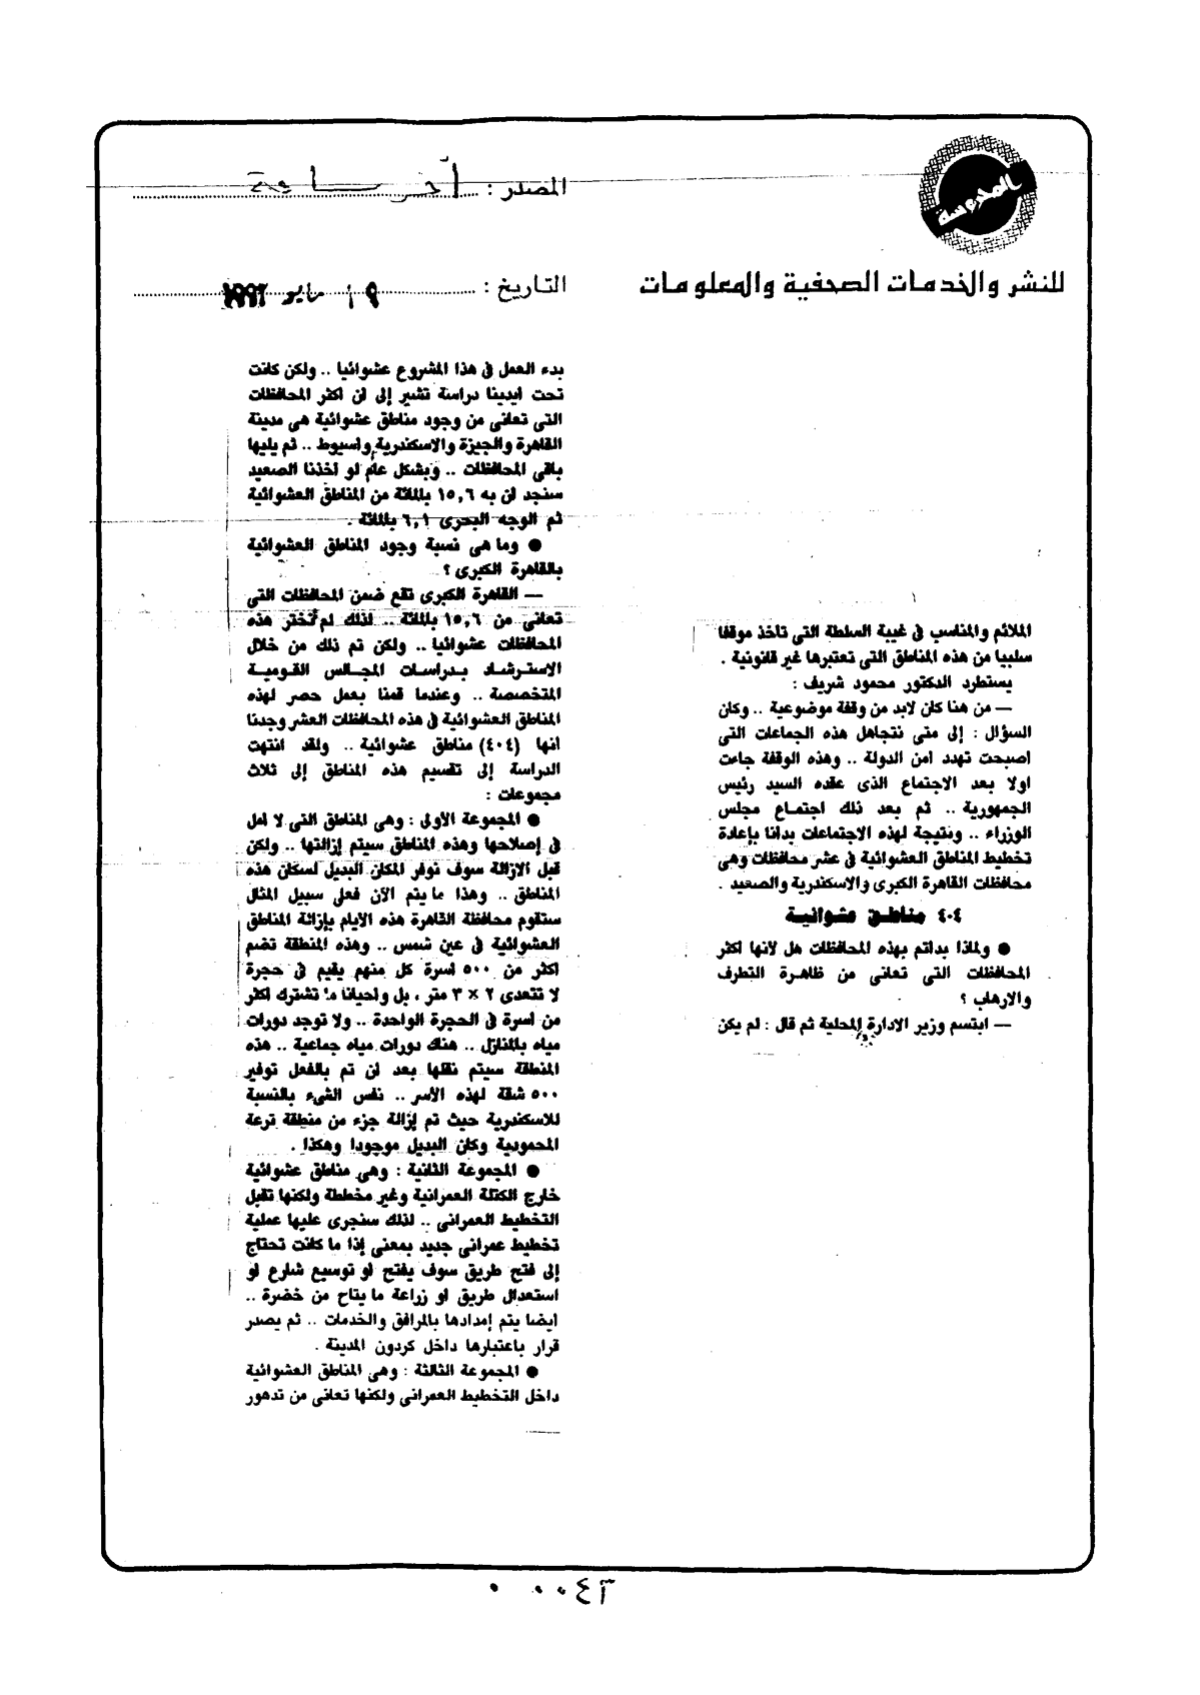 المحروسة
للنشر والخدمات الصحفية والمعلومات
المصدر : آخر ساعة
التاريخ : ١٩ مايو ١٩٩٣
الملائم والمناسب فى غيبة السلطة التى تاخذ موقفا
سلبيا من هذه المناطق التى تعتبرها غير قانونية .
يستطرد الدكتور محمود شريف :
— من هنا كان لابد من وقفة موضوعية .. وكان
السؤال : إلى متى نتجاهل هذه الجماعات التى
اصبحت تهدد امن الدولة .. وهذه الوقفة جاءت
اولا بعد الاجتماع الذى عقده السيد رئيس
الجمهورية .. ثم بعد ذلك اجتماع مجلس
الوزراء .. ونتيجة لهذه الاجتماعات بدانا بإعادة
تخطيط المناطق العشوائية فى عشر محافظات وهى
محافظات القاهرة الكبرى والاسكندرية والصعيد .
٤٠٤ مناطق عشوائية
● ولماذا بداتم بهذه المحافظات هل لانها اكثر
المحافظات التى تعانى من ظاهرة التطرف
والارهاب ؟
— ابتسم وزير الادارة المحلية ثم قال : لم يكن
بدء العمل فى هذا المشروع عشوائيا .. ولكن كانت
تحت ايدينا دراسة تشير إلى ان اكثر المحافظات
التى تعانى من وجود مناطق عشوائية هى مدينة
القاهرة والجيزة والاسكندرية واسيوط .. ثم يليها
باقى المحافظات .. وبشكل عام لو اخذنا الصعيد
سنجد ان به ١٥,٦ بالمائة من المناطق العشوائية
ثم الوجه البحرى ٦,١ بالمائة .
● وما هى نسبة وجود المناطق العشوائية
بالقاهرة الكبرى ؟
— القاهرة الكبرى تقع ضمن المحافظات التى
تعانى من ١٥,٦ بالمائة .. لذلك لم تختر هذه
المحافظات عشوائيا .. ولكن تم ذلك من خلال
الاسترشاد بدراسات المجالس القومية
المتخصصة .. وعندما قمنا بعمل حصر لهذه
المناطق العشوائية فى هذه المحافظات العشر وجدنا
انها (٤٠٤) مناطق عشوائية .. ولقد انتهت
الدراسة إلى تقسيم هذه المناطق إلى ثلاث
مجموعات :
● المجموعة الأولى : وهى المناطق التى لا امل
فى إصلاحها وهذه المناطق سيتم إزالتها .. ولكن
قبل الازالة سوف نوفر المكان البديل لسكان هذه
المناطق .. وهذا ما يتم الآن فعلى سبيل المثال
ستقوم محافظة القاهرة هذه الايام بإزالة المناطق
العشوائية فى عين شمس .. وهذه المنطقة تضم
اكثر من ٥٠٠ اسرة كل منهم يقيم فى حجرة
لا تتعدى ٢ × ٣ متر ، بل واحيانا ما تشترك اكثر
من اسرة فى الحجرة الواحدة .. ولا توجد دورات
مياه بالمنازل .. هناك دورات مياه جماعية .. هذه
المنطقة سيتم نقلها بعد ان تم بالفعل توفير
٥٠٠ شقة لهذه الأسر .. نفس الشىء بالنسبة
للاسكندرية حيث تم إزالة جزء من منطقة ترعة
المحمودية وكان البديل موجودا وهكذا .
● المجموعة الثانية : وهى مناطق عشوائية
خارج الكتلة العمرانية وغير مخططة ولكنها تقبل
التخطيط العمرانى .. لذلك سنجرى عليها عملية
تخطيط عمرانى جديد بمعنى إذا ما كانت تحتاج
إلى فتح طريق سوف يفتح او توسيع شارع او
استعدال طريق او زراعة ما يتاح من خضرة ..
ايضا يتم إمدادها بالمرافق والخدمات .. ثم يصدر
قرار باعتبارها داخل كردون المدينة .
● المجموعة الثالثة : وهى المناطق العشوائية
داخل التخطيط العمرانى ولكنها تعانى من تدهور